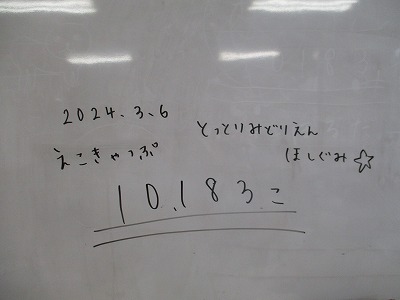 2024.3.6
とっとりみどりえん
えこきゃっぷ
ほしぐみ☆
10,183こ